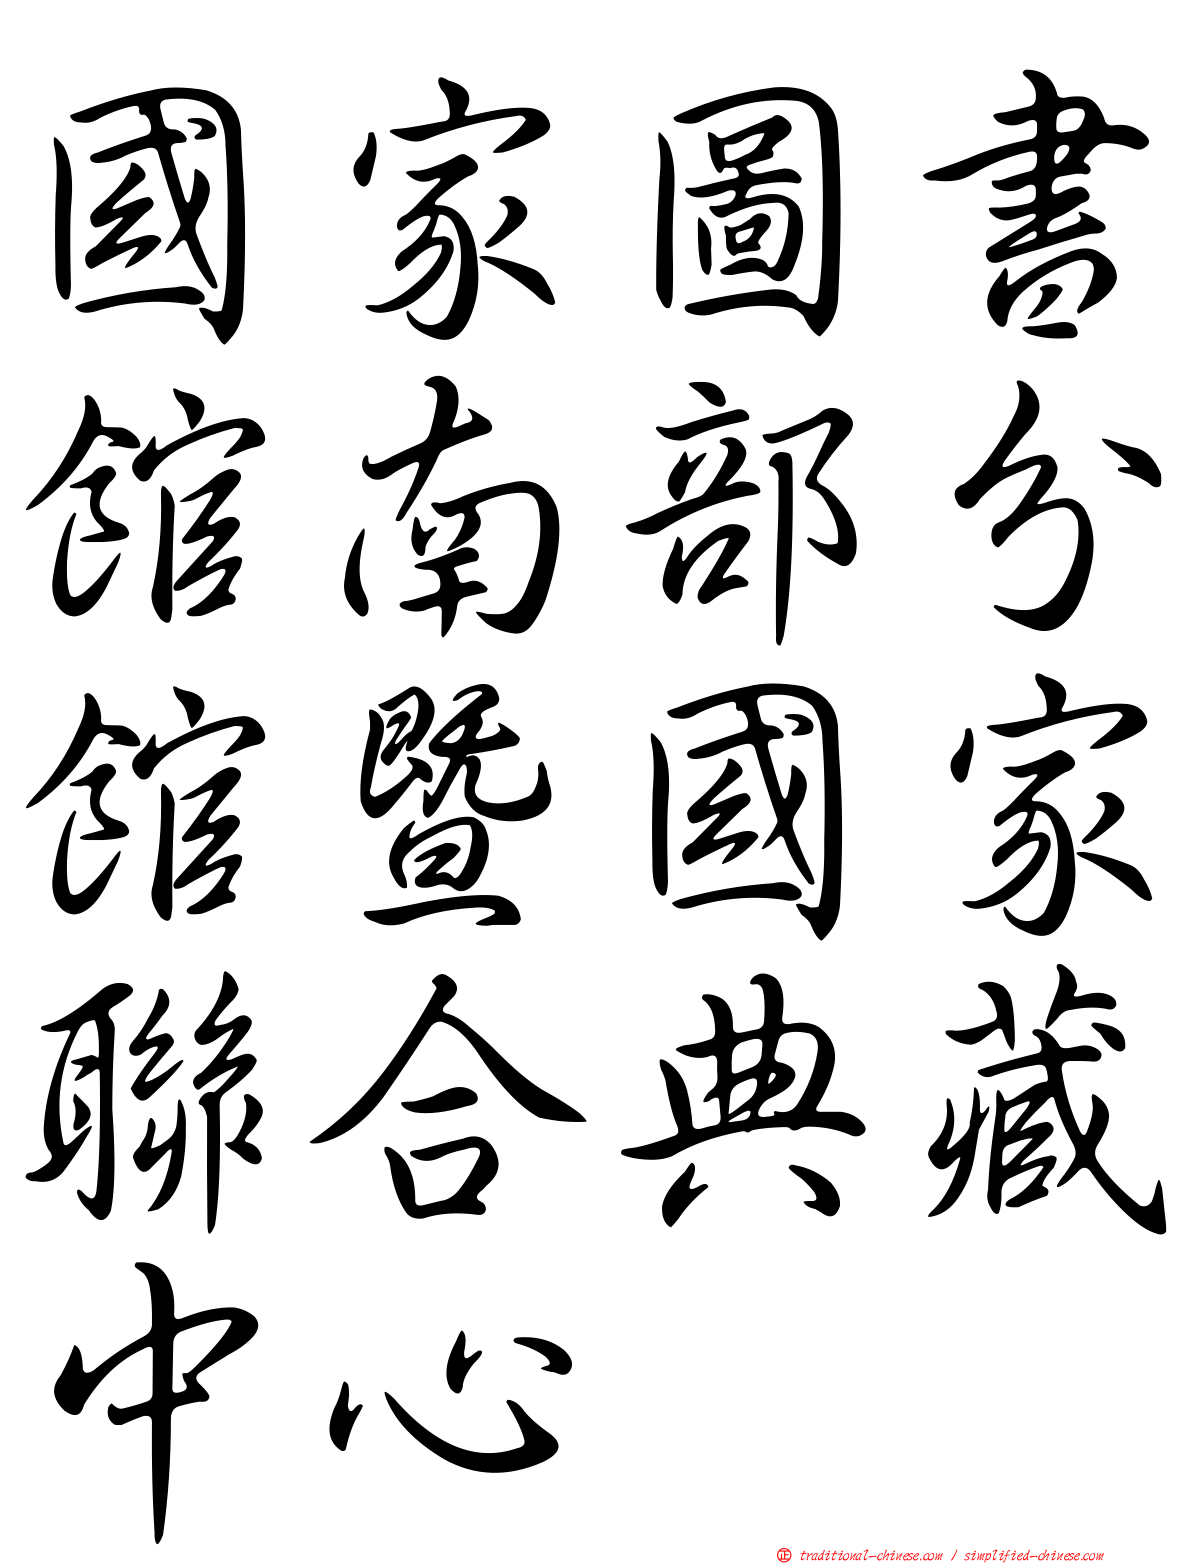 國家圖書
館南部分
館暨國家
聯合典藏
中心
正 traditional-chinese.com / simplified-chinese.com